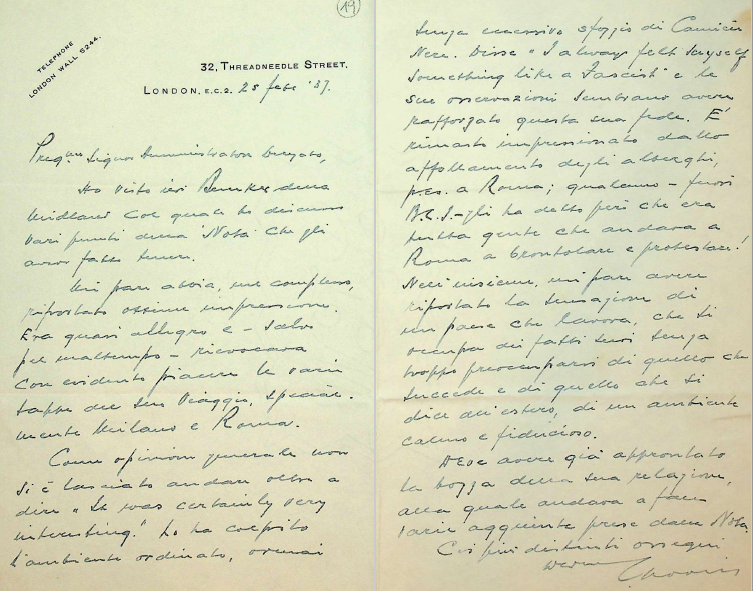 19
TELEPHONE
LONDON WALL 5244.
32, THREADNEEDLE STREET,
LONDON, E.C.2. 25 febb '37.
Preg.mo Signor Amministratore Delegato,
Ho visto ieri Bunker della
Midland col quale ho discusso
vari punti della "Nota" che gli
avevo fatto tenere.
Mi pare abbia, nel complesso,
riportato ottime impressioni.
Era quasi allegro e - salvo
pel maltempo - rievocava
con evidente piacere le varie
tappe del suo viaggio, special-
mente Milano e Roma.
Come opinione generale non
si è lasciato andare oltre a
dire "It was certainly very
interesting." Lo ha colpito
l'ambiente ordinato, ormai
senza eccessivo sfoggio di Camicie
Nere. Disse "I always felt myself
something like a Fascist" e le
sue osservazioni sembrano avere
rafforzato questa sua fede. È
rimasto impressionato dallo
affollamento degli alberghi,
p.es. a Roma; qualcuno - fuori
B.C.I. - gli ha detto però che era
tutta gente che andava a
Roma a brontolare e protestare!
Nell'insieme, mi pare avere
riportato la sensazione di
un paese che lavora, che si
occupa di fatti suoi senza
troppo preoccuparsi di quello che
succede e di quello che si
dice all'estero, di un ambiente
calmo e fiducioso.
Deve avere già approntato
la bozza della sua relazione,
alla quale andava a fare
varie aggiunte prese dalla Nota.
Coi più distinti ossequi